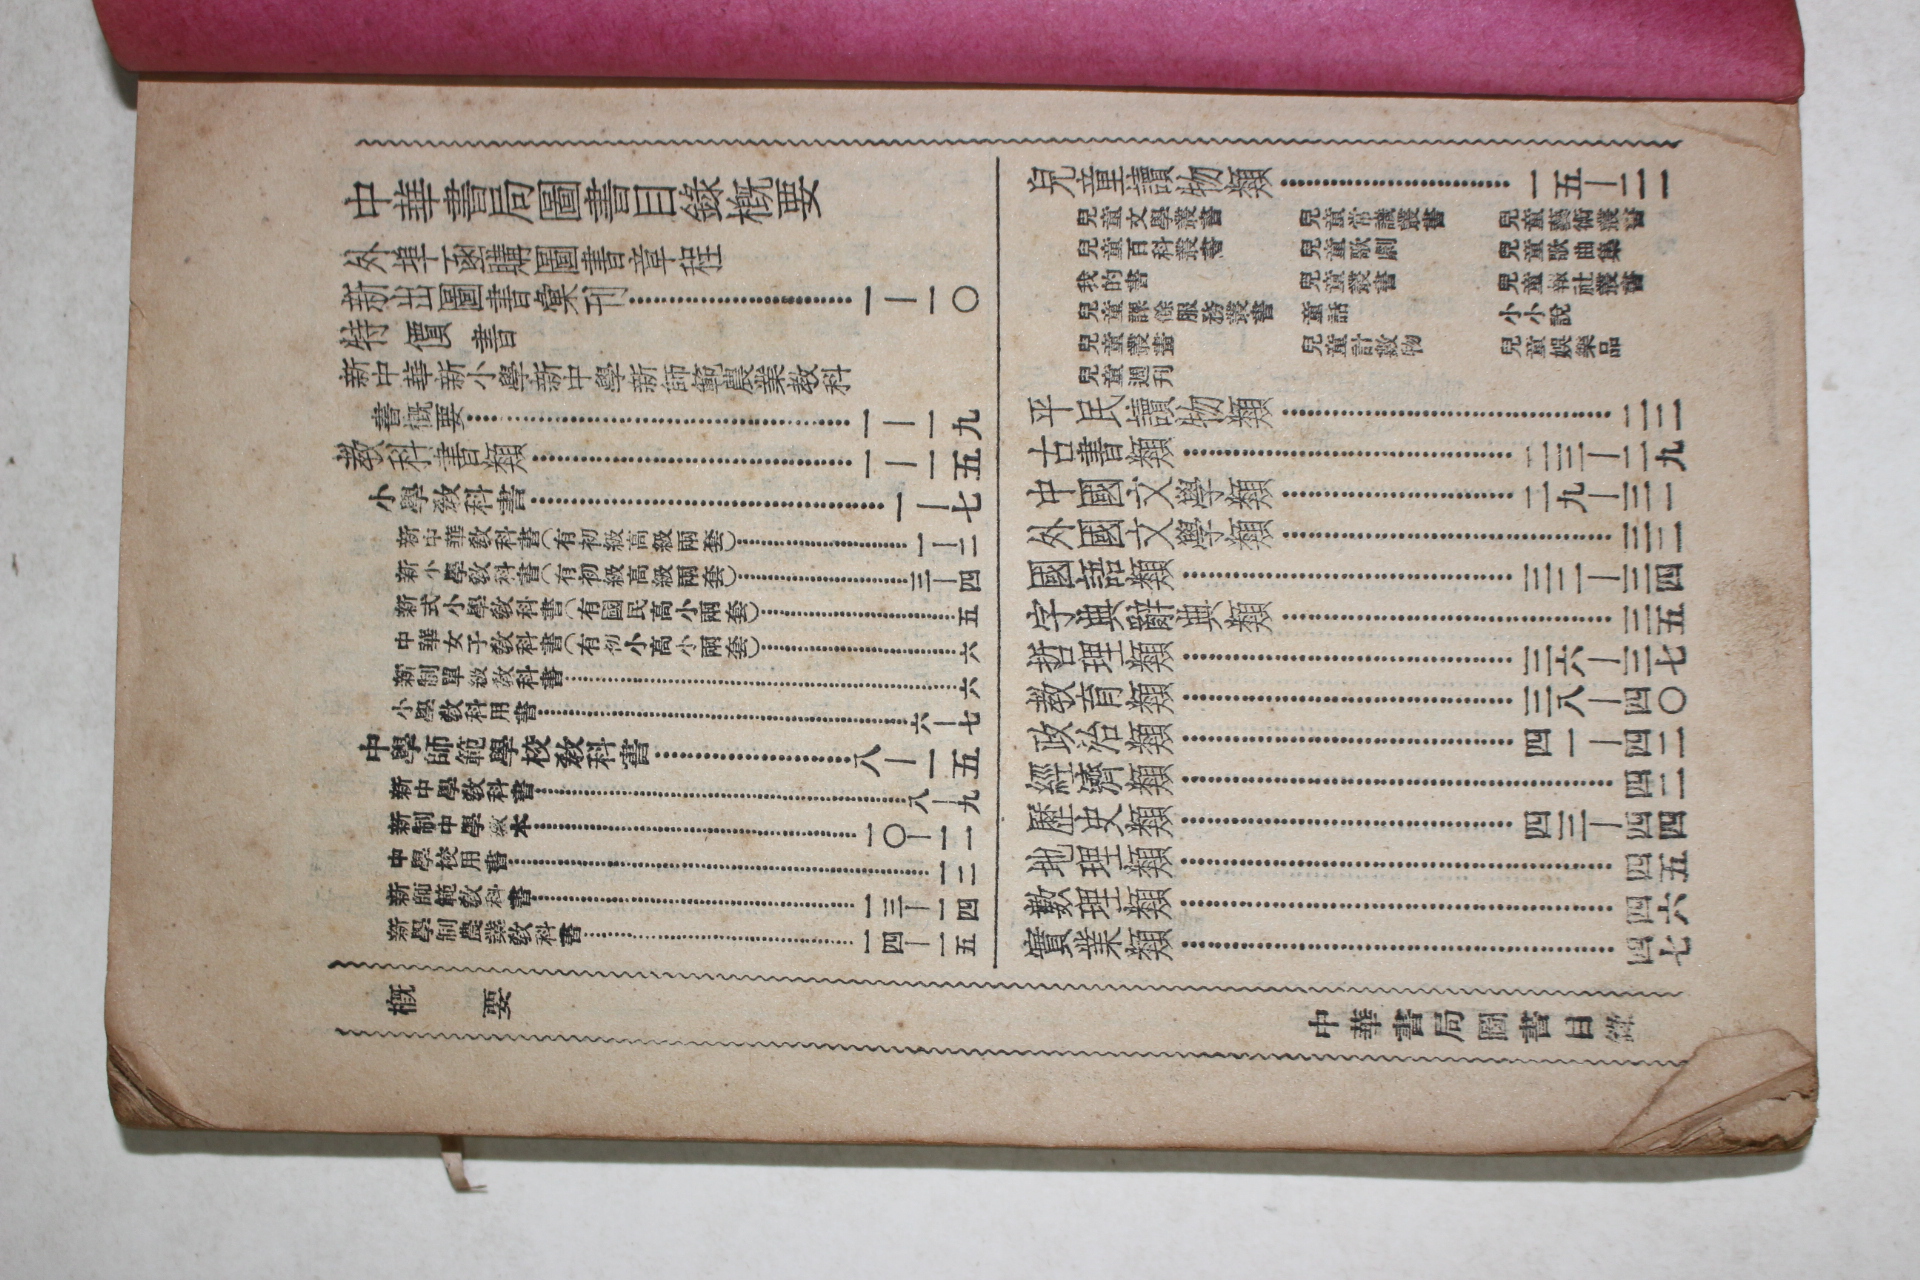 中華書局圖書目錄概要
外埠函購圖書章程
新出圖書彙刊……一—一〇
特價書
新中華新小學新中學新師範農業教科
書概要……一—一九
教科書類……一—一五
小學教科書……一—七
新中華教科書(有初級高級兩套)……一—二
新小學教科書(有初級高級兩套)……三—四
新式小學教科書(有國民高小兩套)……五
中華女子教科書(有初小高小兩套)……六
新制單級教科書……六
小學教科用書……六—七
中學師範學校教科書……八—一五
新中學教科書……八—九
新制中學教本……一〇—一一
中學校用書……一二
新師範教科書……一三—一四
新學制農業教科書……一四—一五
兒童讀物類……一五—二一
兒童文學叢書 兒童常識叢書 兒童藝術叢書
兒童百科叢書 兒童歌劇 兒童歌曲集
我的書 兒童叢書 兒童報社叢書
兒童課餘服務叢書 童話 小小說
兒童叢畫 兒童計數物 兒童娛樂品
兒童週刊
平民讀物類……二二
古書類……二三—二九
中國文學類……二九—三一
外國文學類……三二
國語類……三三—三四
字典辭典類……三五
哲理類……三六—三七
教育類……三八—四〇
政治類……四一—四二
經濟類……四二
歷史類……四三—四四
地理類……四五
數理類……四六
實業類……四七
概要
中華書局圖書目錄